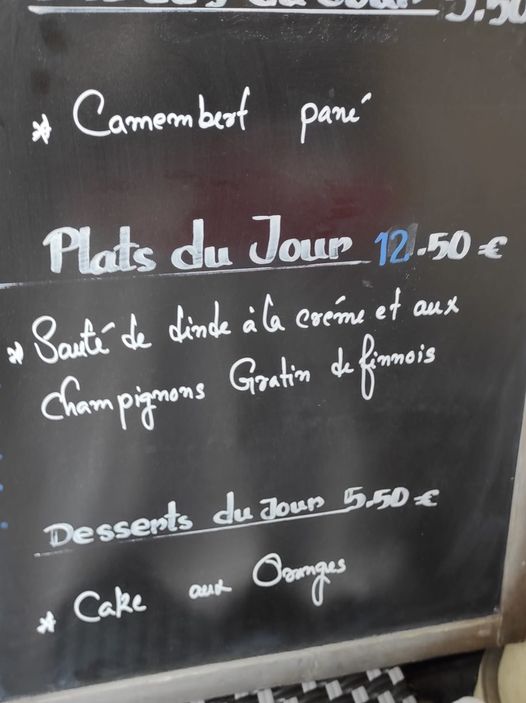 du Jour 5.50
* Camembert pané
Plats du Jour 12.50 €
* Sauté de dinde à la créme et aux
champignons Gratin de finnois
Desserts du Jour 5.50 €
* Cake aux Oranges